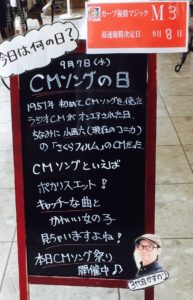 カープ優勝マジック M3
最速優勝決定日 9月8日
今日は何の日?
9月7日(水)
CMソングの日
1951年 初めてCMソングを使った
ラジオCMがオンエアされた日
ちなみに小西六(現在のコニカ)
の「さくらフイルム」のCMだった
CMソングといえば
ポカリスエット!
キャッチーな曲と
かわいい女の子
見ちゃいますよね!
本日CMソング祭り
開催中♪